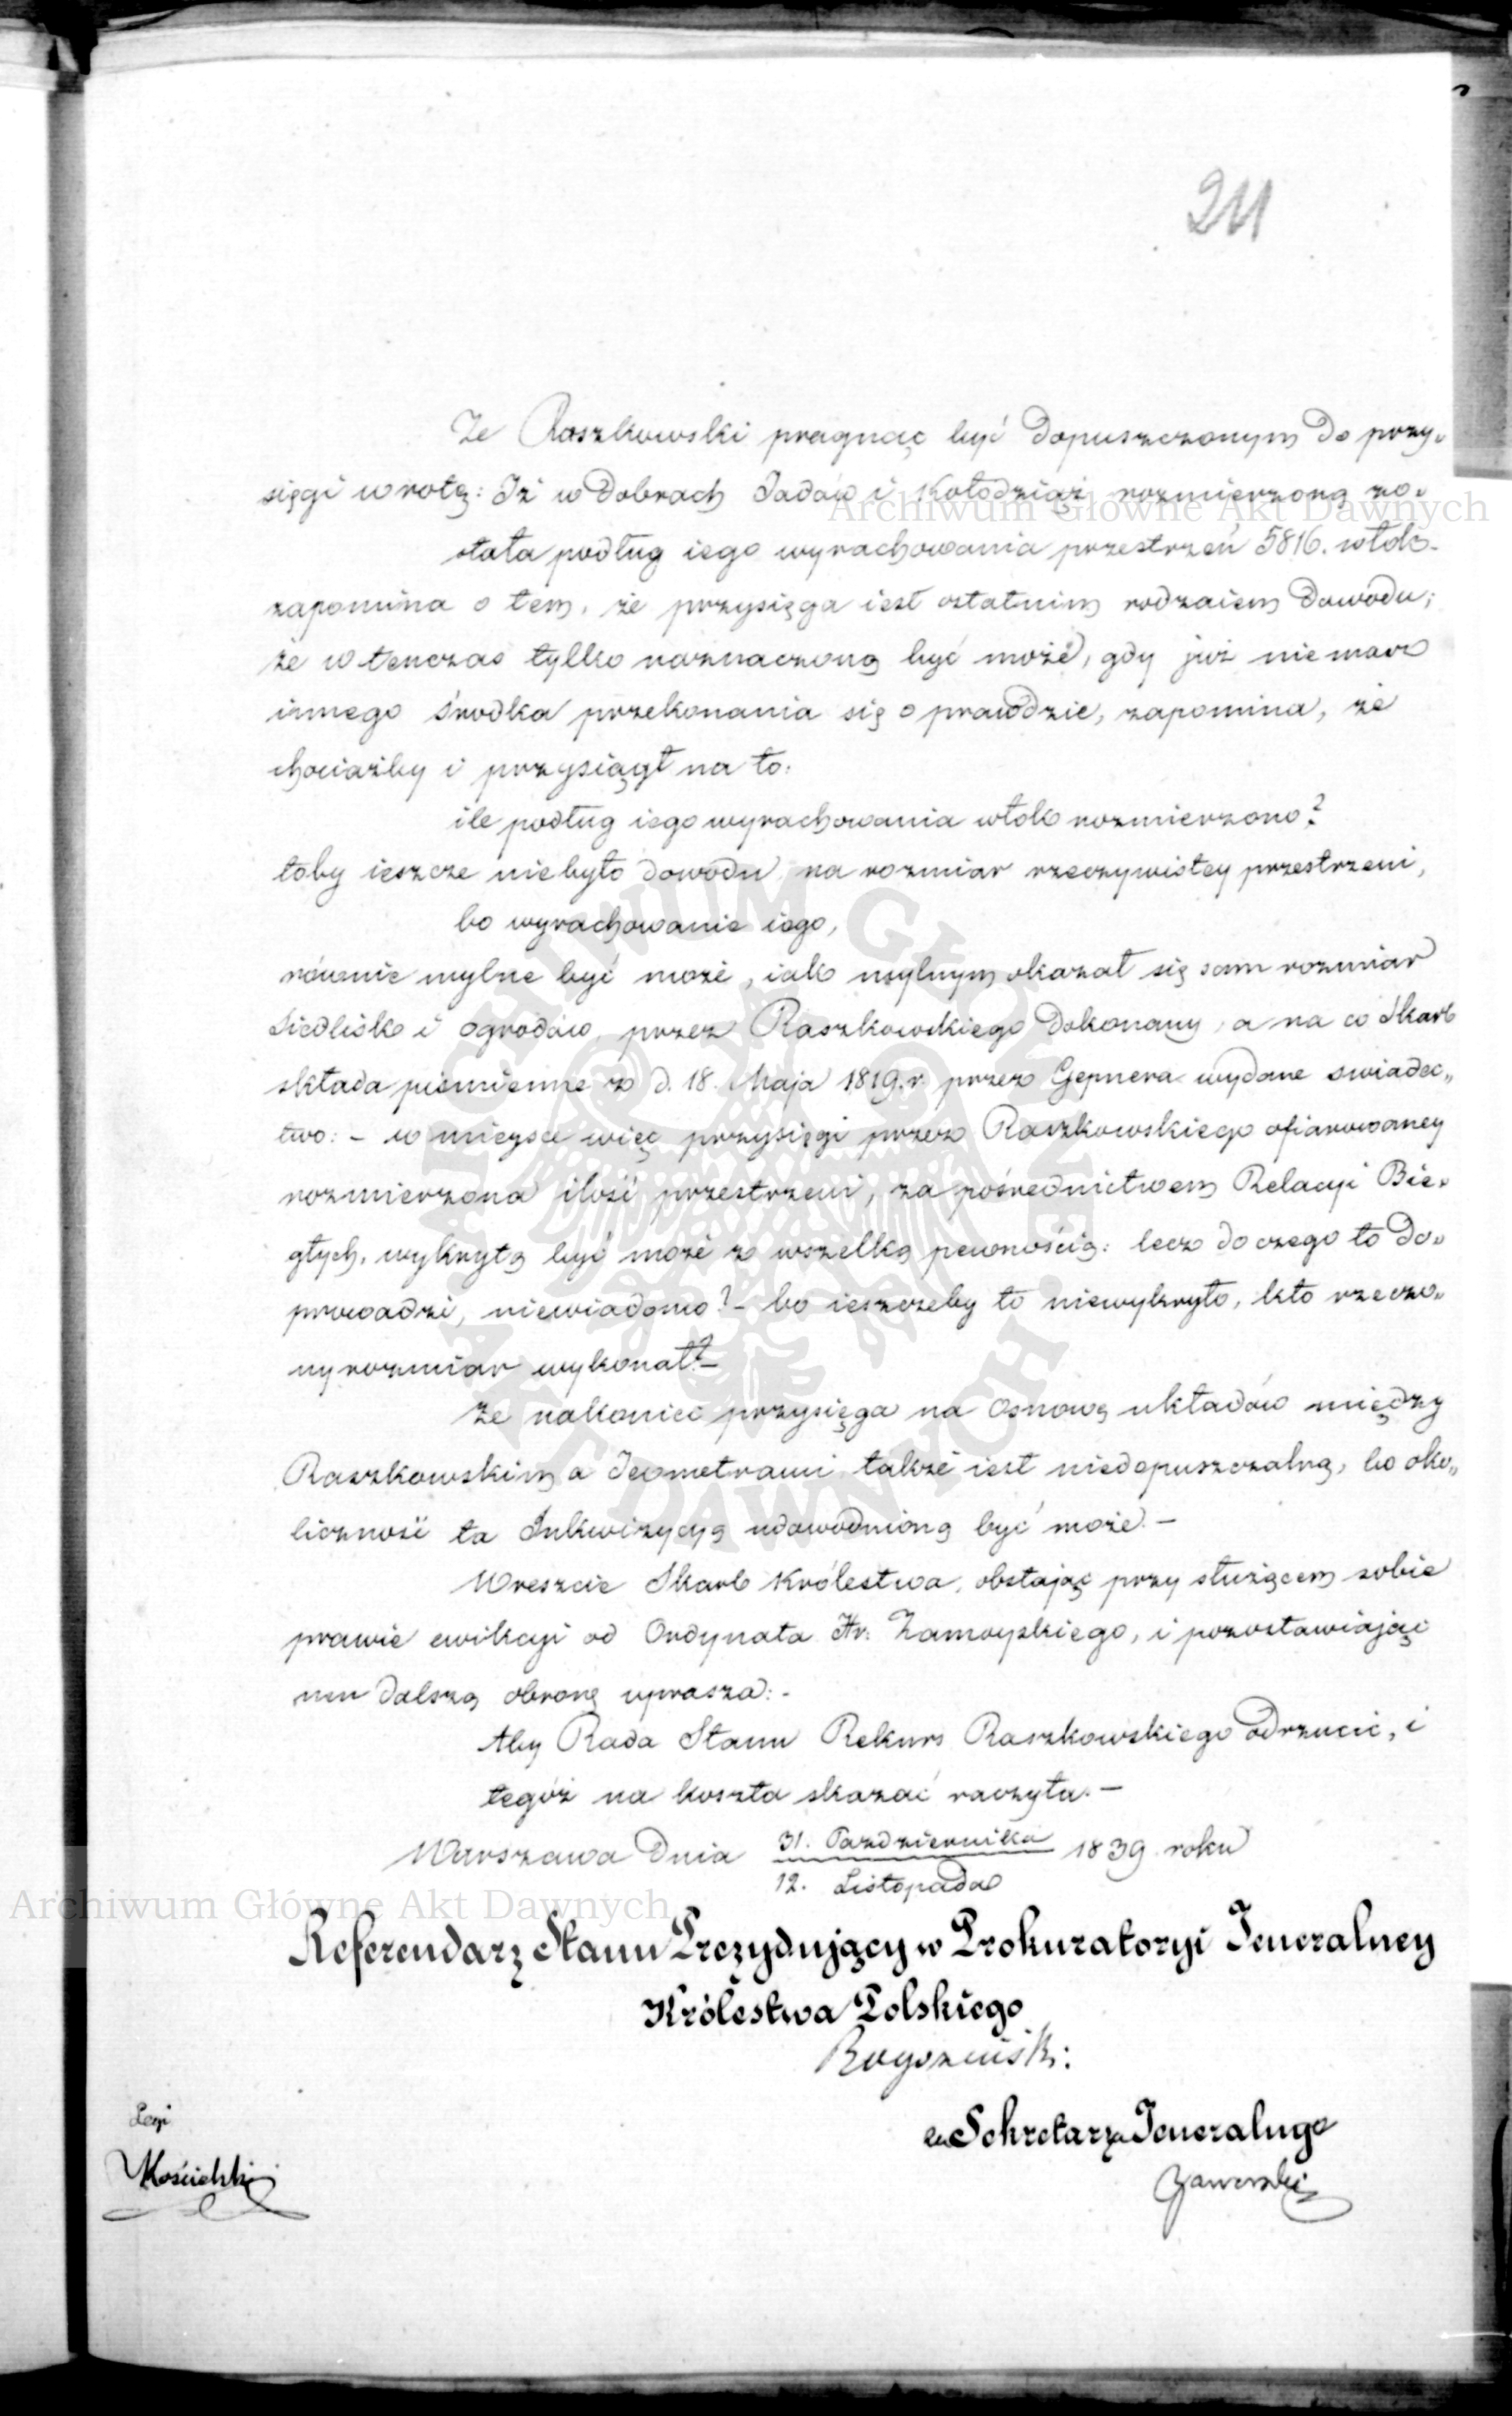 211
Że Raszkowski pragnąc być dopuszczonym do przy„
sięgi w rotę: Iż w Dobrach Jadów i Kołodziąż rozmierzoną zo„
stała podług iego wyrachowania przestrzeń 5816. włók-
zapomina o tem, że przysięga iest ostatnim rodzaiem dowodu;
że w tenczas tylko naznaczoną być może, gdy już nie masz
innego środka przekonania się o prawdzie, zapomina, że
chociażby i przysiągł na to:
ile podług iego wyrachowania włók rozmierzono?
toby ieszcze niebyło dowodu na rozmiar rzeczywistey przestrzeni,
bo wyrachowanie iego,
równie mylne być może, iak mylnym okazał się sam rozmiar
Siedlisk i ogrodów, przez Raszkowskiego dokonany, a na co Skarb
składa piśmienne z d. 18. Maja 1819. r. przez Gepnera wydane swiadec„
two: - w mieysce więc przysięgi przez Raszkowskiego ofiarowaney
rozmierzona ilość przestrzeni, za pośrednictwem Relacyi Bie„
głych, wykrytą być może z wszelką pewnością: lecz do czego to do„
prowadzi, niewiadomo? - bo ieszczeby to niewykryło, kto rzeczo„
ny rozmiar wykonał? -
Że nakoniec przysięga na osnowę układów między
Raszkowskim a Jeometrami także iest niedopuszczalną, bo oko„
liczność ta Inkwizycyą udowodnioną być może. -
Wreszcie Skarb Królestwa, obstając przy służącem sobie
prawie ewikcyi od Ordynata Hr: Zamoyskiego, i pozostawiając
mu dalszą obronę uprasza: -
Aby Rada Stanu Rekurs Raszkowskiego odrzucić, i
tegóż na koszta skazać raczyła. -
Warszawa dnia 31. Października 1839 roku
12. Listopada
Referendarz Stanu Prezydujący w Prokuratoryi Jeneralney
Królestwa Polskiego
za Sekretarza Jeneralnego
Jaworski
Archiwum Główne Akt Dawnych
Archiwum Główne Akt Dawnych
ARCHIWUM GŁÓWNE AKT DAWNYCH